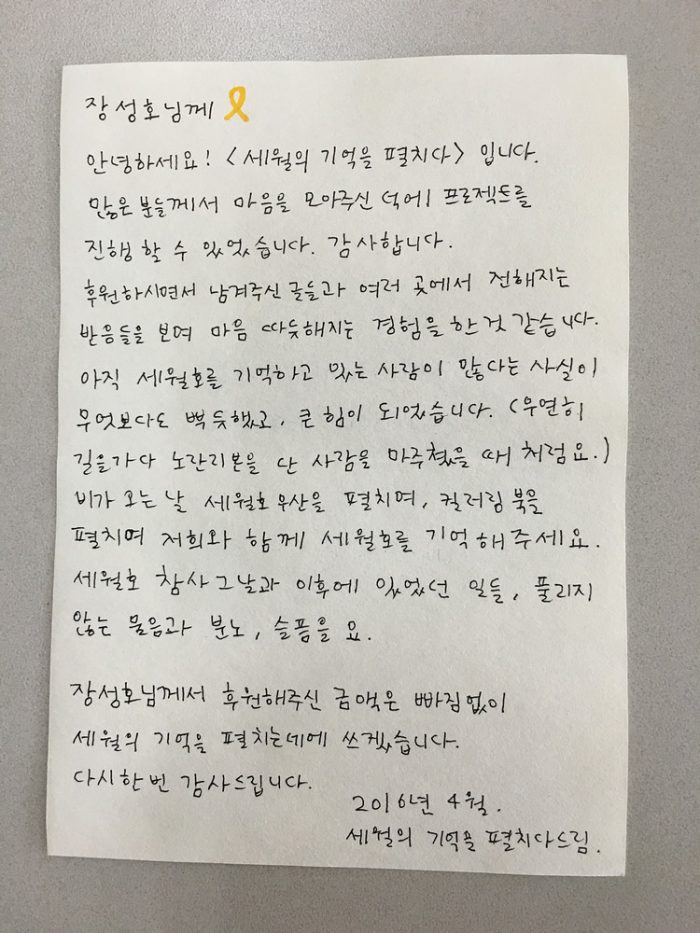 장성호님께
안녕하세요! <세월의 기억을 펼치다> 입니다.
많은 분들께서 마음을 모아주신 덕에 프로젝트를
진행 할 수 있었습니다. 감사합니다.
후원하시면서 남겨주신 글들과 여러 곳에서 전해지는
반응들을 보며 마음 따듯해지는 경험을 한 것 같습니다.
아직 세월호를 기억하고 있는 사람이 많다는 사실이
무엇보다도 뿌듯했고, 큰 힘이 되었습니다. (우연히
길을가다 노란리본을 단 사람을 마주쳤을 때 처럼요.)
비가 오는 날 세월호 우산을 펼치며, 컬러링 북을
펼치며 저희와 함께 세월호를 기억해주세요.
세월호 참사 그날과 이후에 있었던 일들, 풀리지
않는 물음과 분노, 슬픔을 요.
장성호님께서 후원해주신 금액은 빠짐없이
세월의 기억을 펼치는데에 쓰겠습니다.
다시한번 감사드립니다.
2016년 4월.
세월의 기억을 펼치다드림.